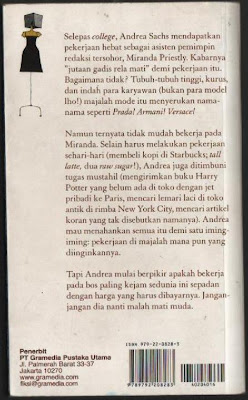 Selepas college, Andrea Sachs mendapatkan
pekerjaan hebat sebagai asisten pemimpin
redaksi tersohor, Miranda Priestly. Kabarnya
"jutaan gadis rela mati" demi pekerjaan itu.
Bagaimana tidak? Tubuh-tubuh tinggi, kurus,
dan indah para karyawan (bukan para model
lho!) majalah mode itu menyerukan nama-
nama seperti Prada! Armani! Versace!
Namun ternyata tidak mudah bekerja pada
Miranda. Selain harus melakukan pekerjaan
sehari-hari (membeli kopi di Starbucks; tall
latte, dua raw sugar!), Andrea juga ditimbuni
tugas mustahil (mengirimkan buku Harry
Potter yang belum ada di toko dengan jet
pribadi ke Paris, mencari lemari laci di toko
antik di rimba New York City, mencari artikel
koran yang tak disebutkan namanya). Andrea
mau menahankan semua itu demi satu iming-
iming: pekerjaan di majalah mana pun yang
diinginkannya.
Tapi Andrea mulai berpikir apakah bekerja
pada bos paling kejam sedunia ini sepadan
dengan harga yang harus dibayarnya. Jangan-
jangan dia nanti malah mati muda.
Penerbit
PT Gramedia Pustaka Utama
Jl. Palmerah Barat 33-37
Jakarta 10270
www.gramedia.com
fiksi@gramedia.com
ISBN 979-22-0828-3
9789792208283
40204016